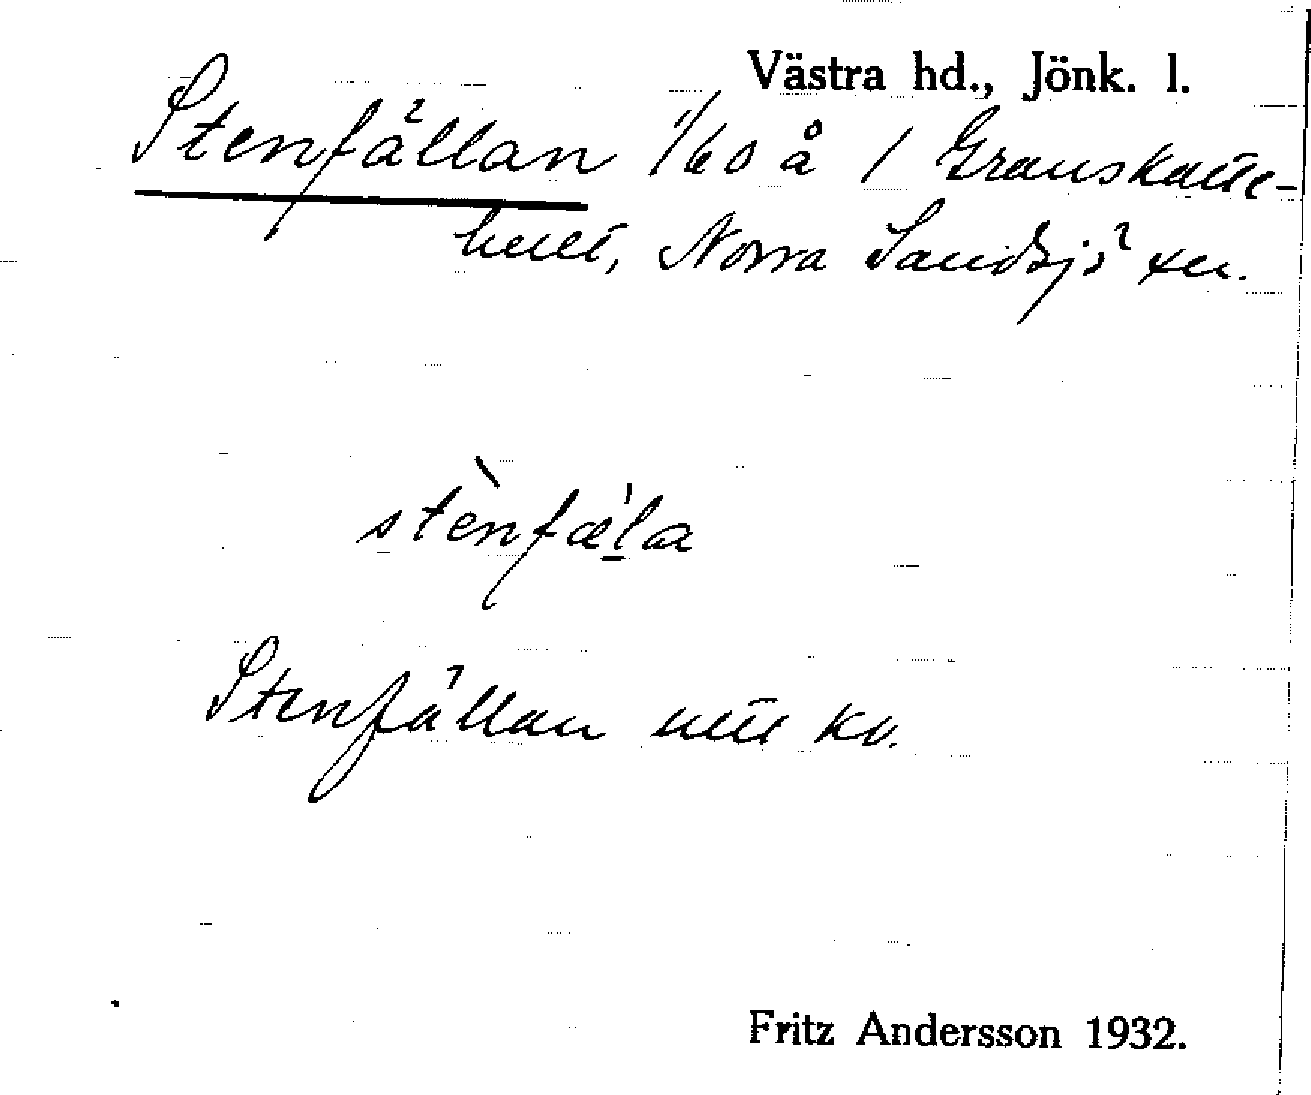 Västra hd., Jönk. l.
Stenfällan 1/60 å 1 Granskatte-
hult, Norra Sandsjö sn.
stènfæ̀la
Stenfällan utt kv.
Fritz Andersson 1932.